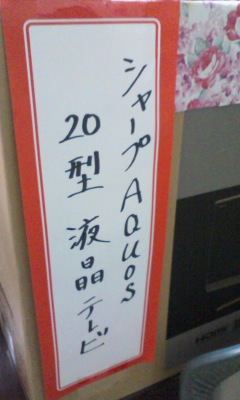 シャープAQUOS
20型 液晶テレビ
HDMI